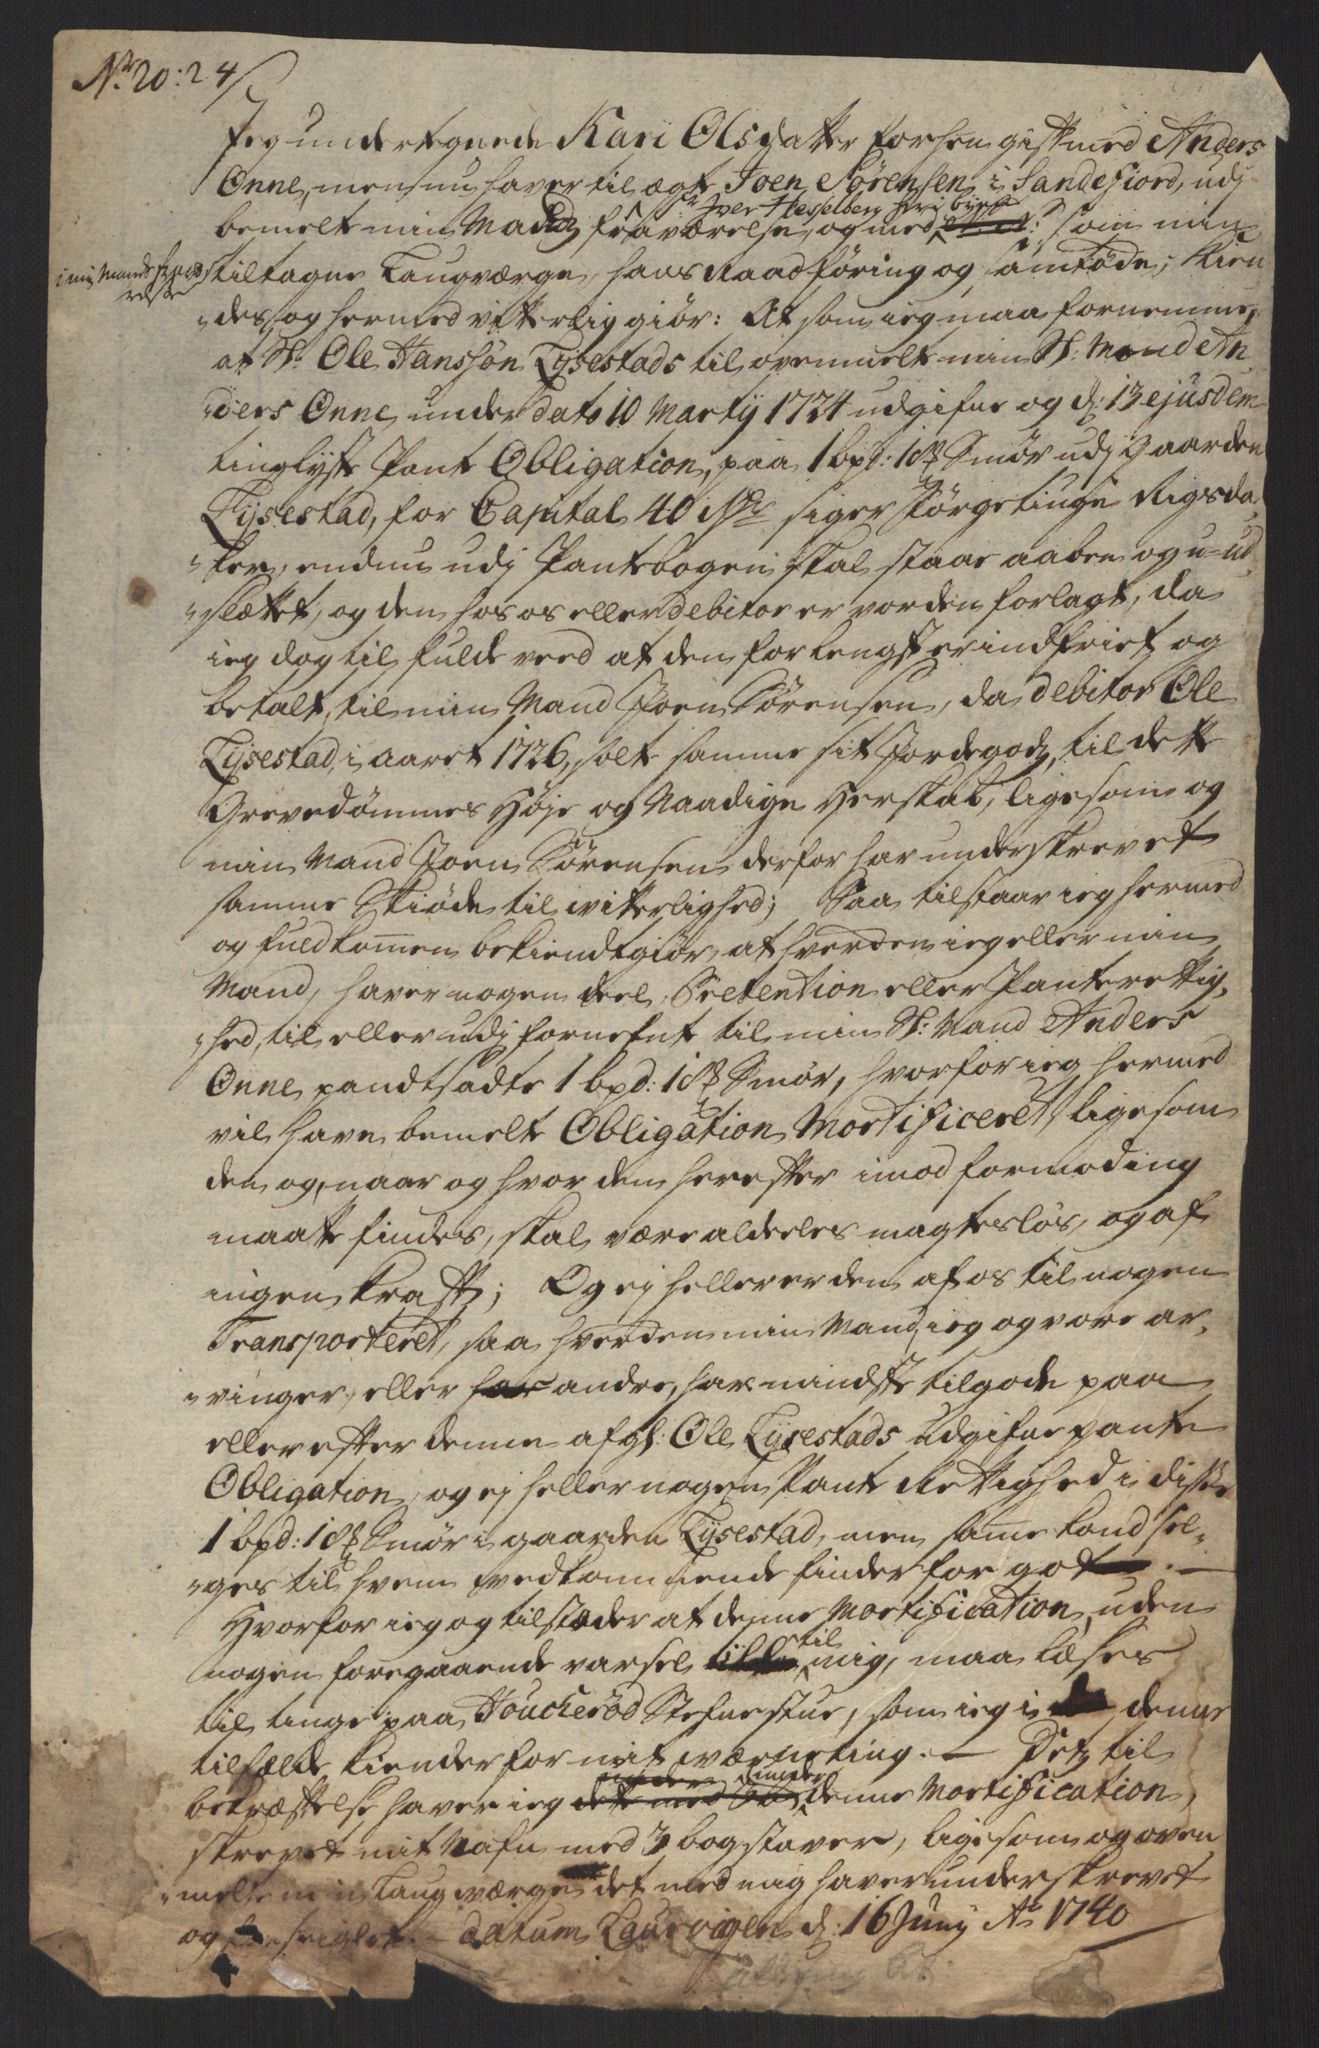 No. 20: 24
Jeg undertegnede Kari Olsdatter forhen gift med Anders
Onne, mens nu haver til ægte Joen Sørensen i Sandefiord, udj
bemelte min Mands fraværelse, og med Sr Iver Hesselberg her i byen som min
i min Mands fraværelse tiltagne Laugværge, hans Raadføring og samtøcke; Kien
des og hermed vitterlig giør: At som ieg maa fornemme,
at Sl: Ole Hanssøn Lysestads til ovenmelte min Sl: Mand An
ders Onne under dato 10 Martij 1724 udgifne og d: 13 ejusdem
tinglyste Pant Obligation, paa 1 bpd: 1 Smør udj Gaarden
Lysestad, for Capital 40 rdr siger Førgetiuge Rigsda
ler, endnu udj Pantebogen skal staae aaben og u-ud
slættet, og den hos os eller debitor er vorden forlagt, da
ieg dog til fulde veed at den for lengst er indfriet og
betalt, til min Mand Joen Sørensen, da debitor Ole
Lysestad, i aaret 1726, solte samme sit Jordegods, til dette
Grevedømmes Høje og Naadige Herskab, ligesom og
min Mand Joen Sørensen derfor har underskrevet
samme Skiøde til vitterlighed; Saa tilstaar ieg hermed
og fuldkommen bekiendtgiør, at hverden ieg eller min
Mand, haver nogen deel, Prætention eller Panterettig
hed, til eller udj fornefnte til min Sl: Mand Anders
Onne pandtsadte 1 bpd: 1 Smør, hvorfor ieg hermed
vil have bemelte Obligation Mortificeret, ligesom
den og, naar og hvor den herefter imod formoding
maatte findes, skal være aldeeles magtesløs, og af
ingen kraft; Og ej heller er den af os til nogen
Transporteret, saa hverden min Mand, ieg og vore ar
vinger, eller har andre, har mindste tilgode paa
eller efter denne afg: Ole Lysestads udgifne pante
Obligation, og ej heller nogen Pant Rettighed i disse
1 bpd: 1 Smør i gaarden Lysestad, men samme kand sel
ges til hvem vedkommende finder for got.
Hvorfor ieg og tilstæder at denne Mortification, uden
nogen foregaaende varsel til mig, maa læses
til tinge paa Houcherød Stefnestue, som ieg i denne
tilfælde kiender for mit værneting. — Dets til
bekræftelse haver ieg under denne Mortification,
skrevet mit Nafn med 3 bogstaver, ligesom og oven
melte min Laugværge det med mig haver underskrevet
og forseiglet. datum Laurvigen d: 16 Juny Ao 1740